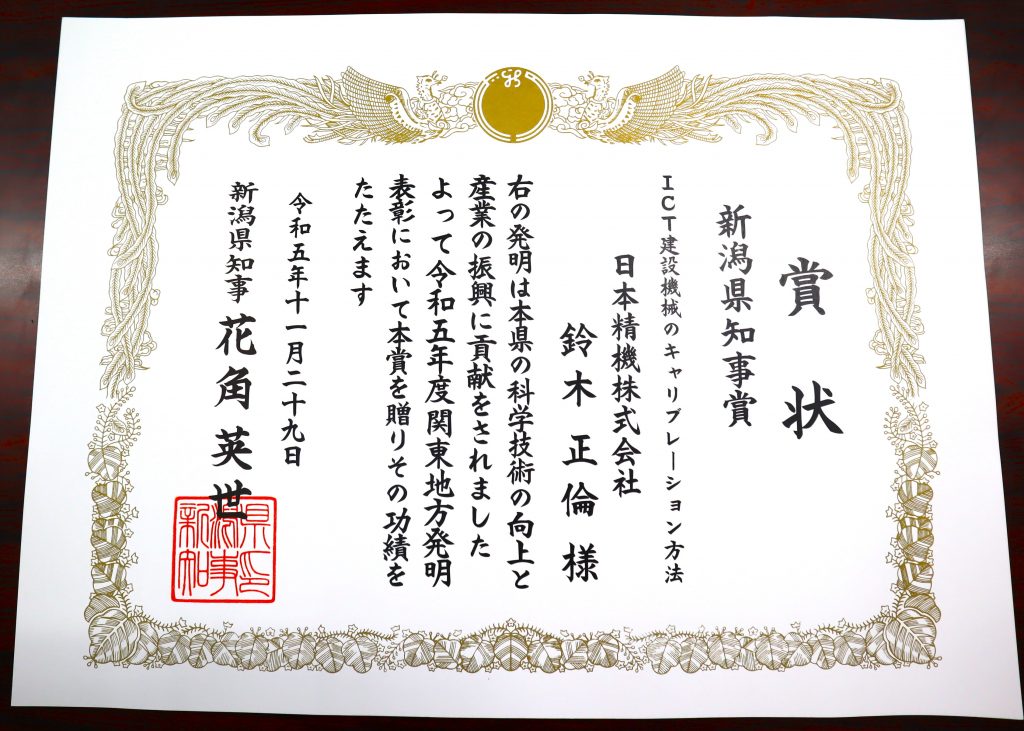 賞状
新潟県知事賞
ICT建設機械のキャリブレーション方法
日本精機株式会社
鈴木正倫様
右の発明は本県の科学技術の向上と
産業の振興に貢献をされました
よって令和五年度関東地方発明
表彰において本賞を贈りその功績を
たたえます
令和五年十一月二十九日
新潟県知事 花角英世
新潟県知事印